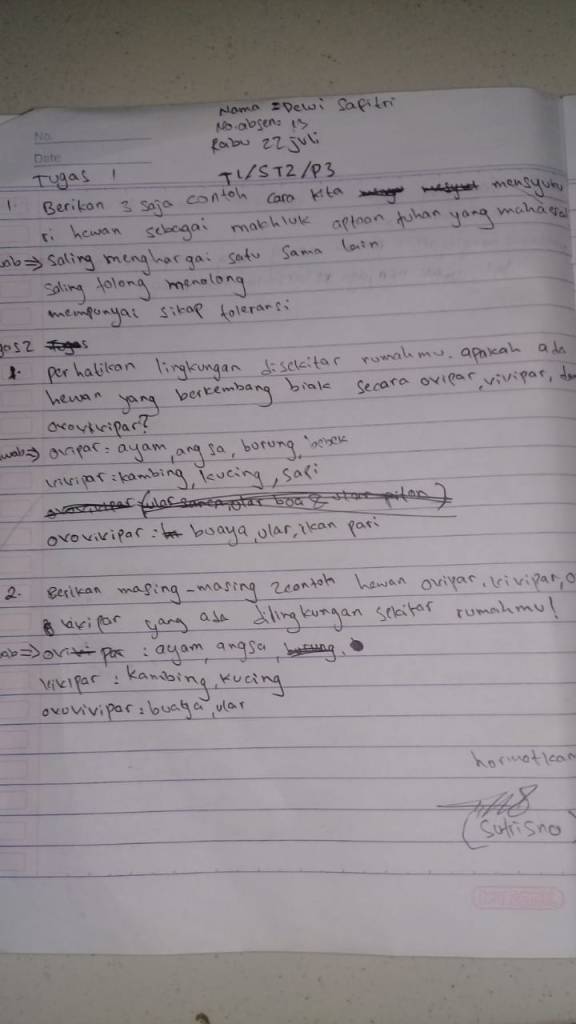 Nama = Dewi Safitri
No. absen: 13
No.
Rabu 22 juli
Date
Tugas 1 T1/ST2/P3
1. Berikan 3 saja contoh cara kita mensyuku
ri hewan sebagai makhluk aptaan tuhan yang mahaesa
ab => Saling menghargai satu sama lain
Saling tolong menolong
mempunyai sikap toleransi
gas2
1. perhatikan lingkungan disekitar rumahmu. apakah ada
hewan yang berkembang biak secara ovipar, vivipar, dan
ovovivipar?
wab=> ovipar: ayam, angsa, borung, bebek
vivipar: kambing, kucing, sapi
ovovivipar (ular sanca, ular boa & ular piton)
ovovivipar: buaya, ular, ikan pari
2. Berikan masing-masing 2contoh hewan ovipar, vivipar, o
vivipar yang ada dilingkungan sekitar rumahmu!
ab=> ovipar: ayam, angsa, burung,
vivipar: kambing, kucing
ovovivipar: buaya, ular
hormatkan
(Sutrisno)